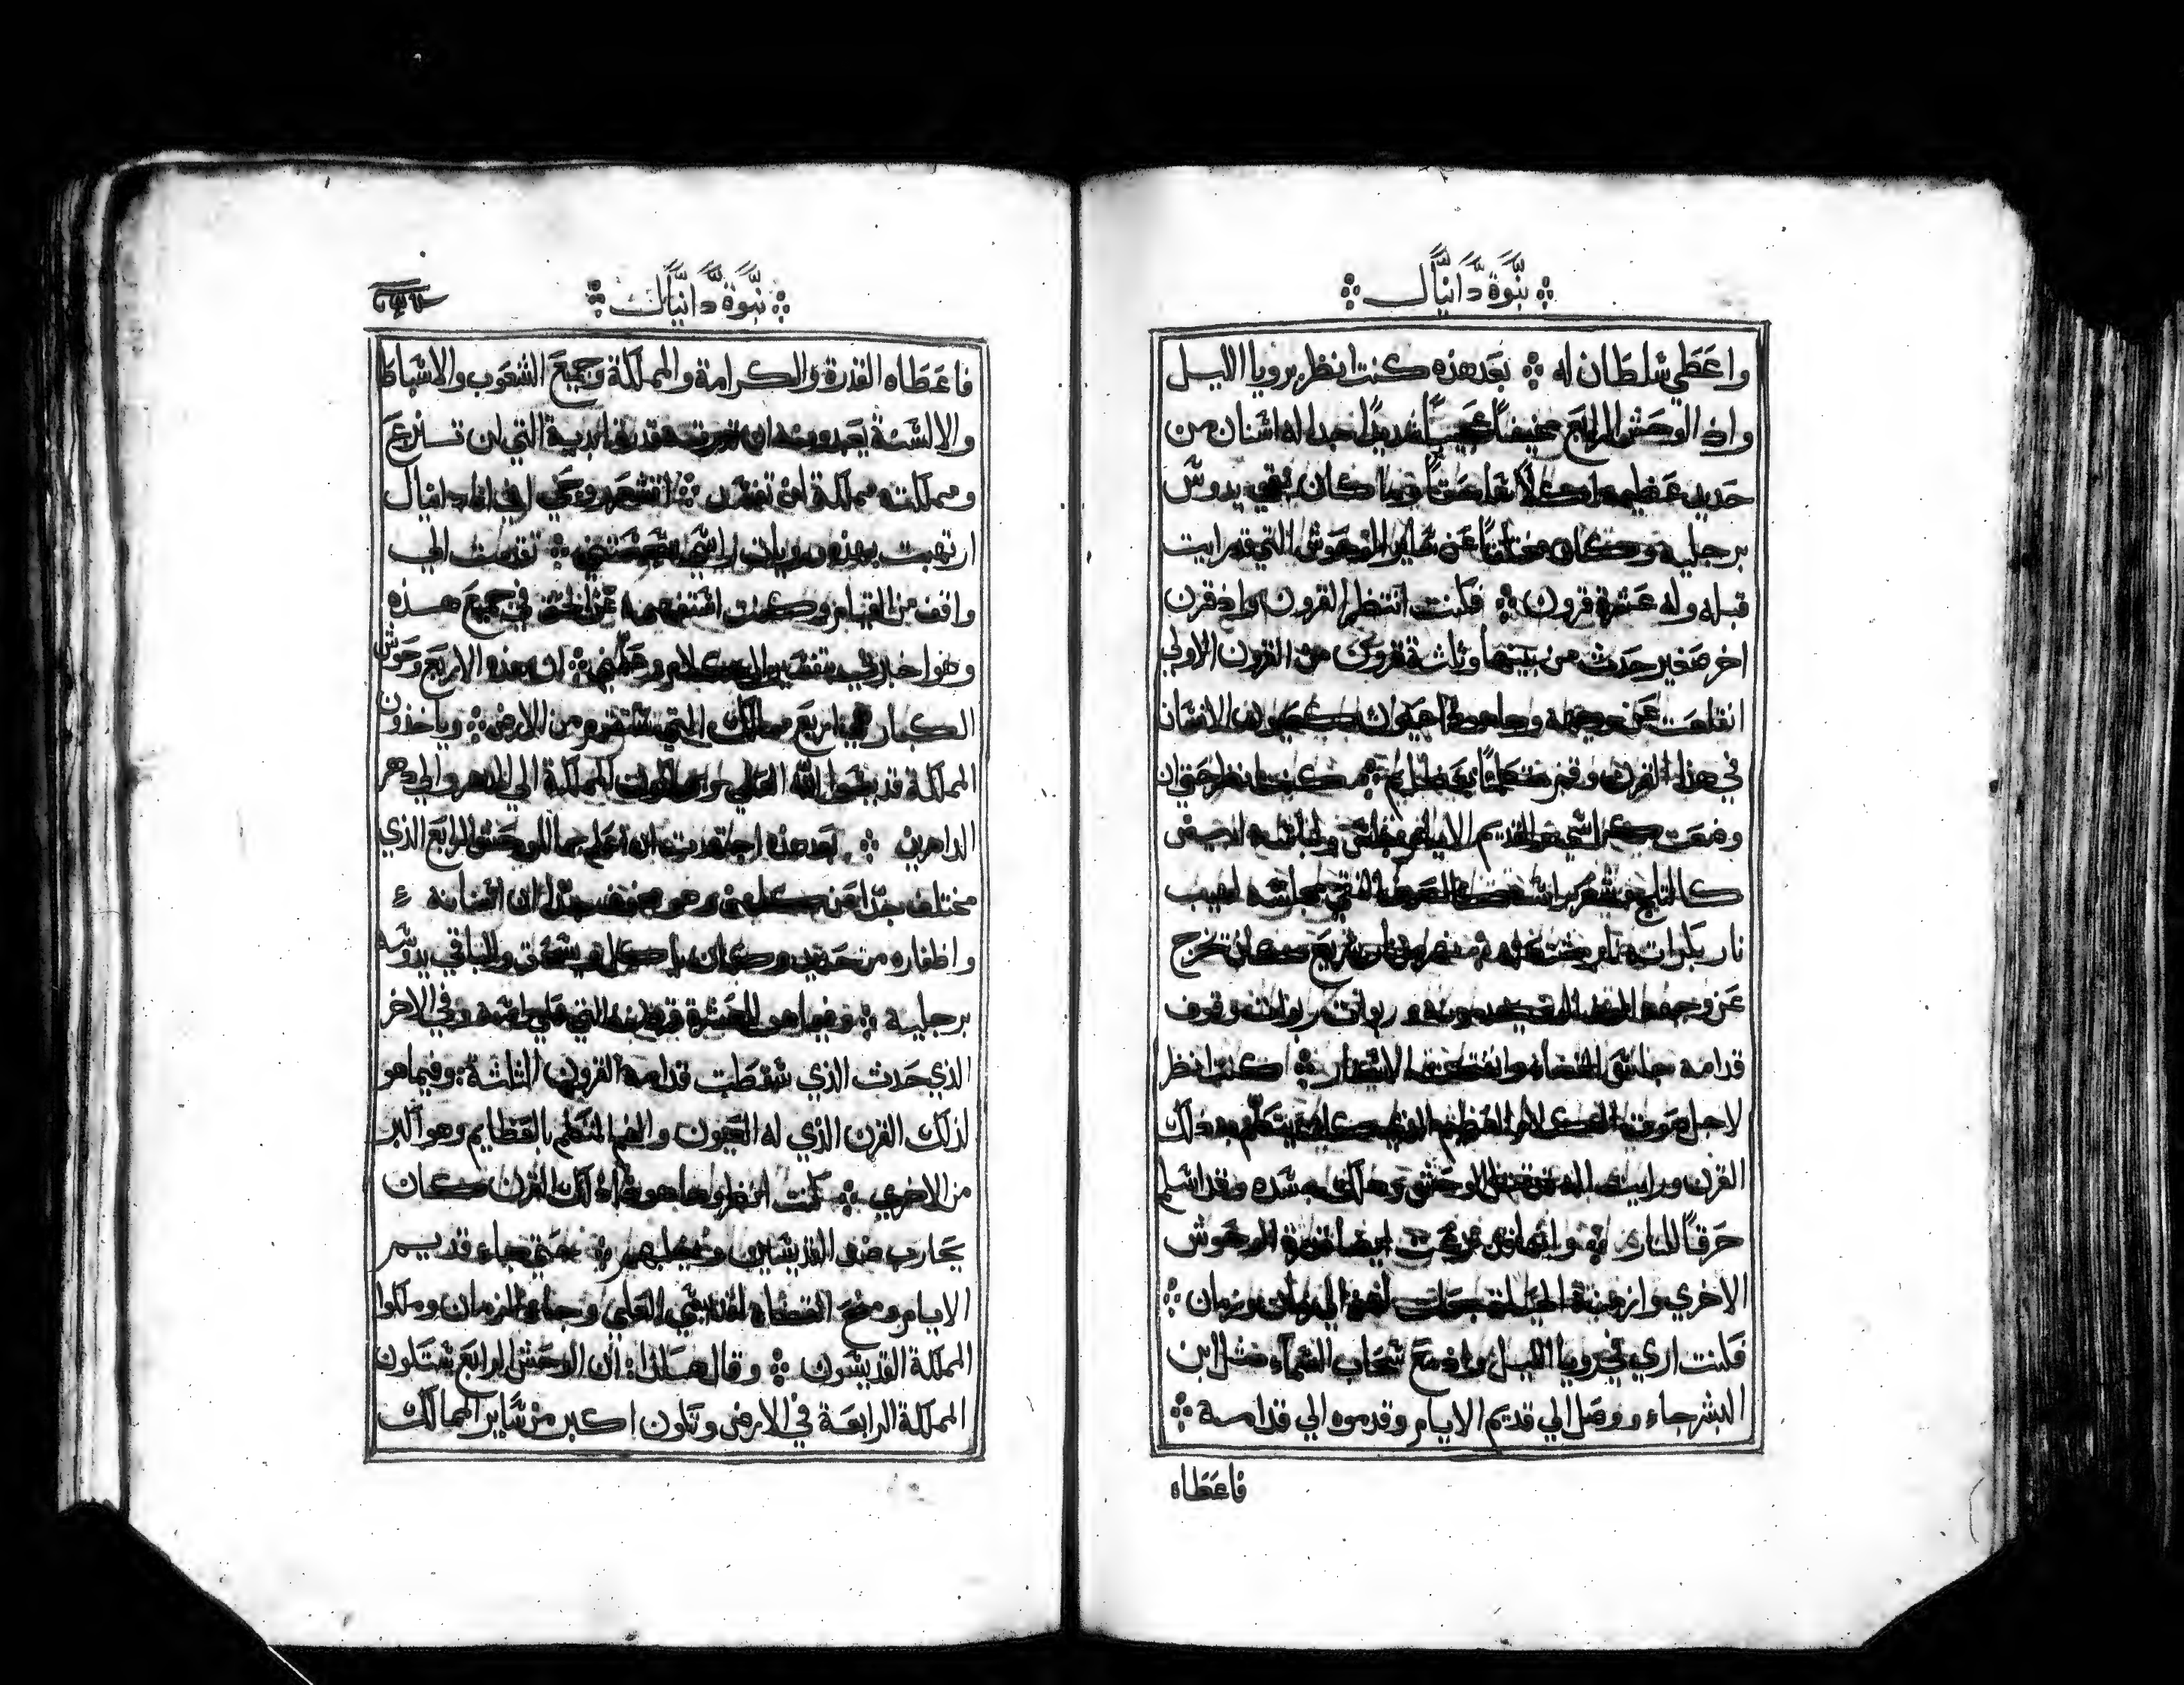 نبوة دانيال
واعطي سلطان له ۞ بعد هذه كنت انظر برويا الليل
واذ الوحش الرابع مخيفاً عجيباً شديداً جدا له اسنان من
حديد عظيمة اكلاً وما كان بقي يدوس
برجليه وكان مختلفاً عن ساير الوحوش التي قد رايت
قبله وله عشرة قرون ۞ فكنت انتظر القرون واذ قرن
اخر صغير حدث من بينها وثلثة قرون من القرون الاولي
انقلعت عن وجهه وها هوذا عيون كعيون الانسان
في هذا القرن وفم متكلماً بعظايم ۞ كنت انظر حتي ان
وضعت كراسي وقديم الايام جلس ولباسه ابيض
كالثلج وشعر راسه كالصوف النقي مجلسه لهيب
نار بكراته نار نهر نار سريع كان تخرج
عن وجهه الوف يخدمونه وربوات ربوات وقوف
قدامه جلس القضاء وانفتحت الاسفار ۞ كنت انظر
لاجل صوت الكلام العظيم الذي كان يتكلم به ذلك
القرن ورايت انه قد قتل الوحش وهلك جسده وقد اسلم
حرقاً للنار ۞ وانها قد نزعت ايضا قوة الوحوش
الاخري وازمنة الحياة جعلت لهم الي زمان وزمان ۞
فكنت اري في رويا الليل واذ مع سحاب السماء مثل ابن
البشر جاء ووصل الي قديم الايام وقدموه الي قدامه ۞
فاعطاه
نبوة دانيال
فاعطاه القدرة والكرامة والمملكة وجميع الشعوب والاسباط
والالسنة يخدمونه ان قدرته قدرة ابدية التي لن تنزع
ومملكته مملكة لن تفسد ۞ انشعرت روحي انا دانيال
ارتهبت بهذه رويات راسي ۞ تقدمت الي
واقف من القيام وكنت استفهمه عن الحق في جميع هذه
وهو اخبرني بتفسير الكلام وعلمني ۞ ان هذه الاربع وحوش
الكبار هي اربع ممالك التي ستقوم من الارض ۞ وياخذون
المملكة قديسوا الله العلي ويرثون المملكة الي الدهر والي دهر
الداهرين ۞ بعد هذه اجتهدت ان اعلم حال الوحش الرابع الذي
مختلف جداً عن كلهن وهو مخيف جداً ان اسنانه
واظفاره من حديد وكان ياكل ويسحق والباقي يدوسه
برجليه ۞ وفيما هو العشرة قرون التي علي راسه وفي الاخر
الذي حدث الذي سقطت قدامه القرون الثلثة ۞ وفيما هو
لذلك القرن الذي له العيون والفم المتكلم بالعظايم وهو اكبر
من الاخري ۞ كنت انظر وها هوذا ذلك القرن كان
يحارب ضد القديسين ويغلبهم ۞ حتي جاء قديم
الايام ومنح القضاء لقديسي العلي وجاء الزمان وملكوا
المملكة القديسون ۞ وقال هكذا ۞ ان الوحش الرابع ستكون
المملكة الرابعة في الارض وتكون اكبر من ساير الممالك